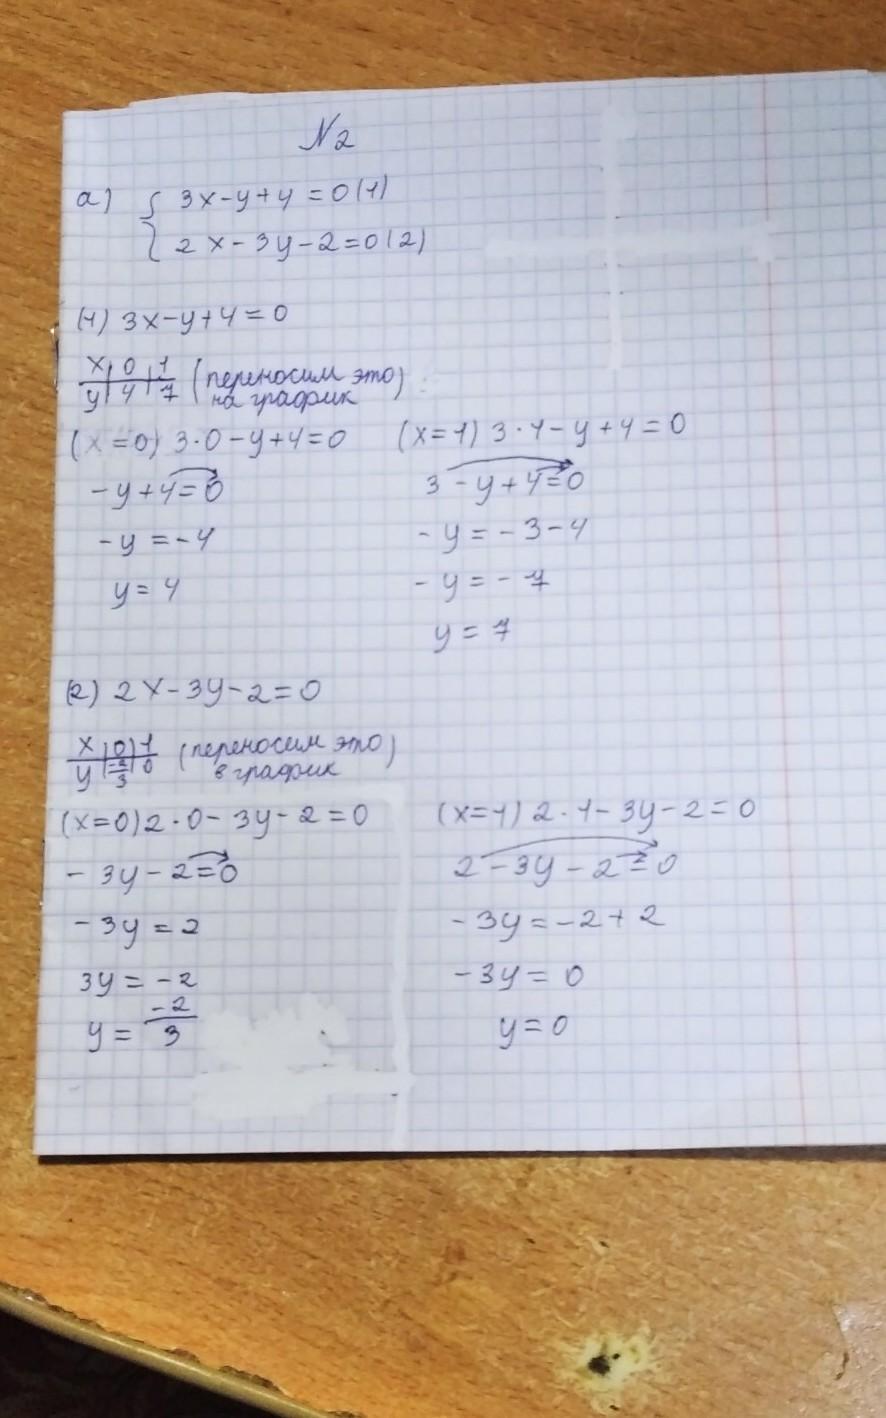 N2
а) { 3x-y+4=0(1)
2x-3y-2=0(2)
(1) 3x-y+4=0
x | 0 | 1 (переносим это)
y | 4 | 7 на график
(x=0) 3·0-y+4=0 (x=1) 3·1-y+4=0
-y+4=0 3-y+4=0
-y=-4 -y=-3-4
y=4 -y=-7
y=7
(2) 2x-3y-2=0
x | 0 | 1 (переносим это)
y | -2/3 | 0 в график
(x=0) 2·0-3y-2=0 (x=1) 2·1-3y-2=0
-3y-2=0 2-3y-2=0
-3y=2 -3y=-2+2
3y=-2 -3y=0
y=-2/3 y=0